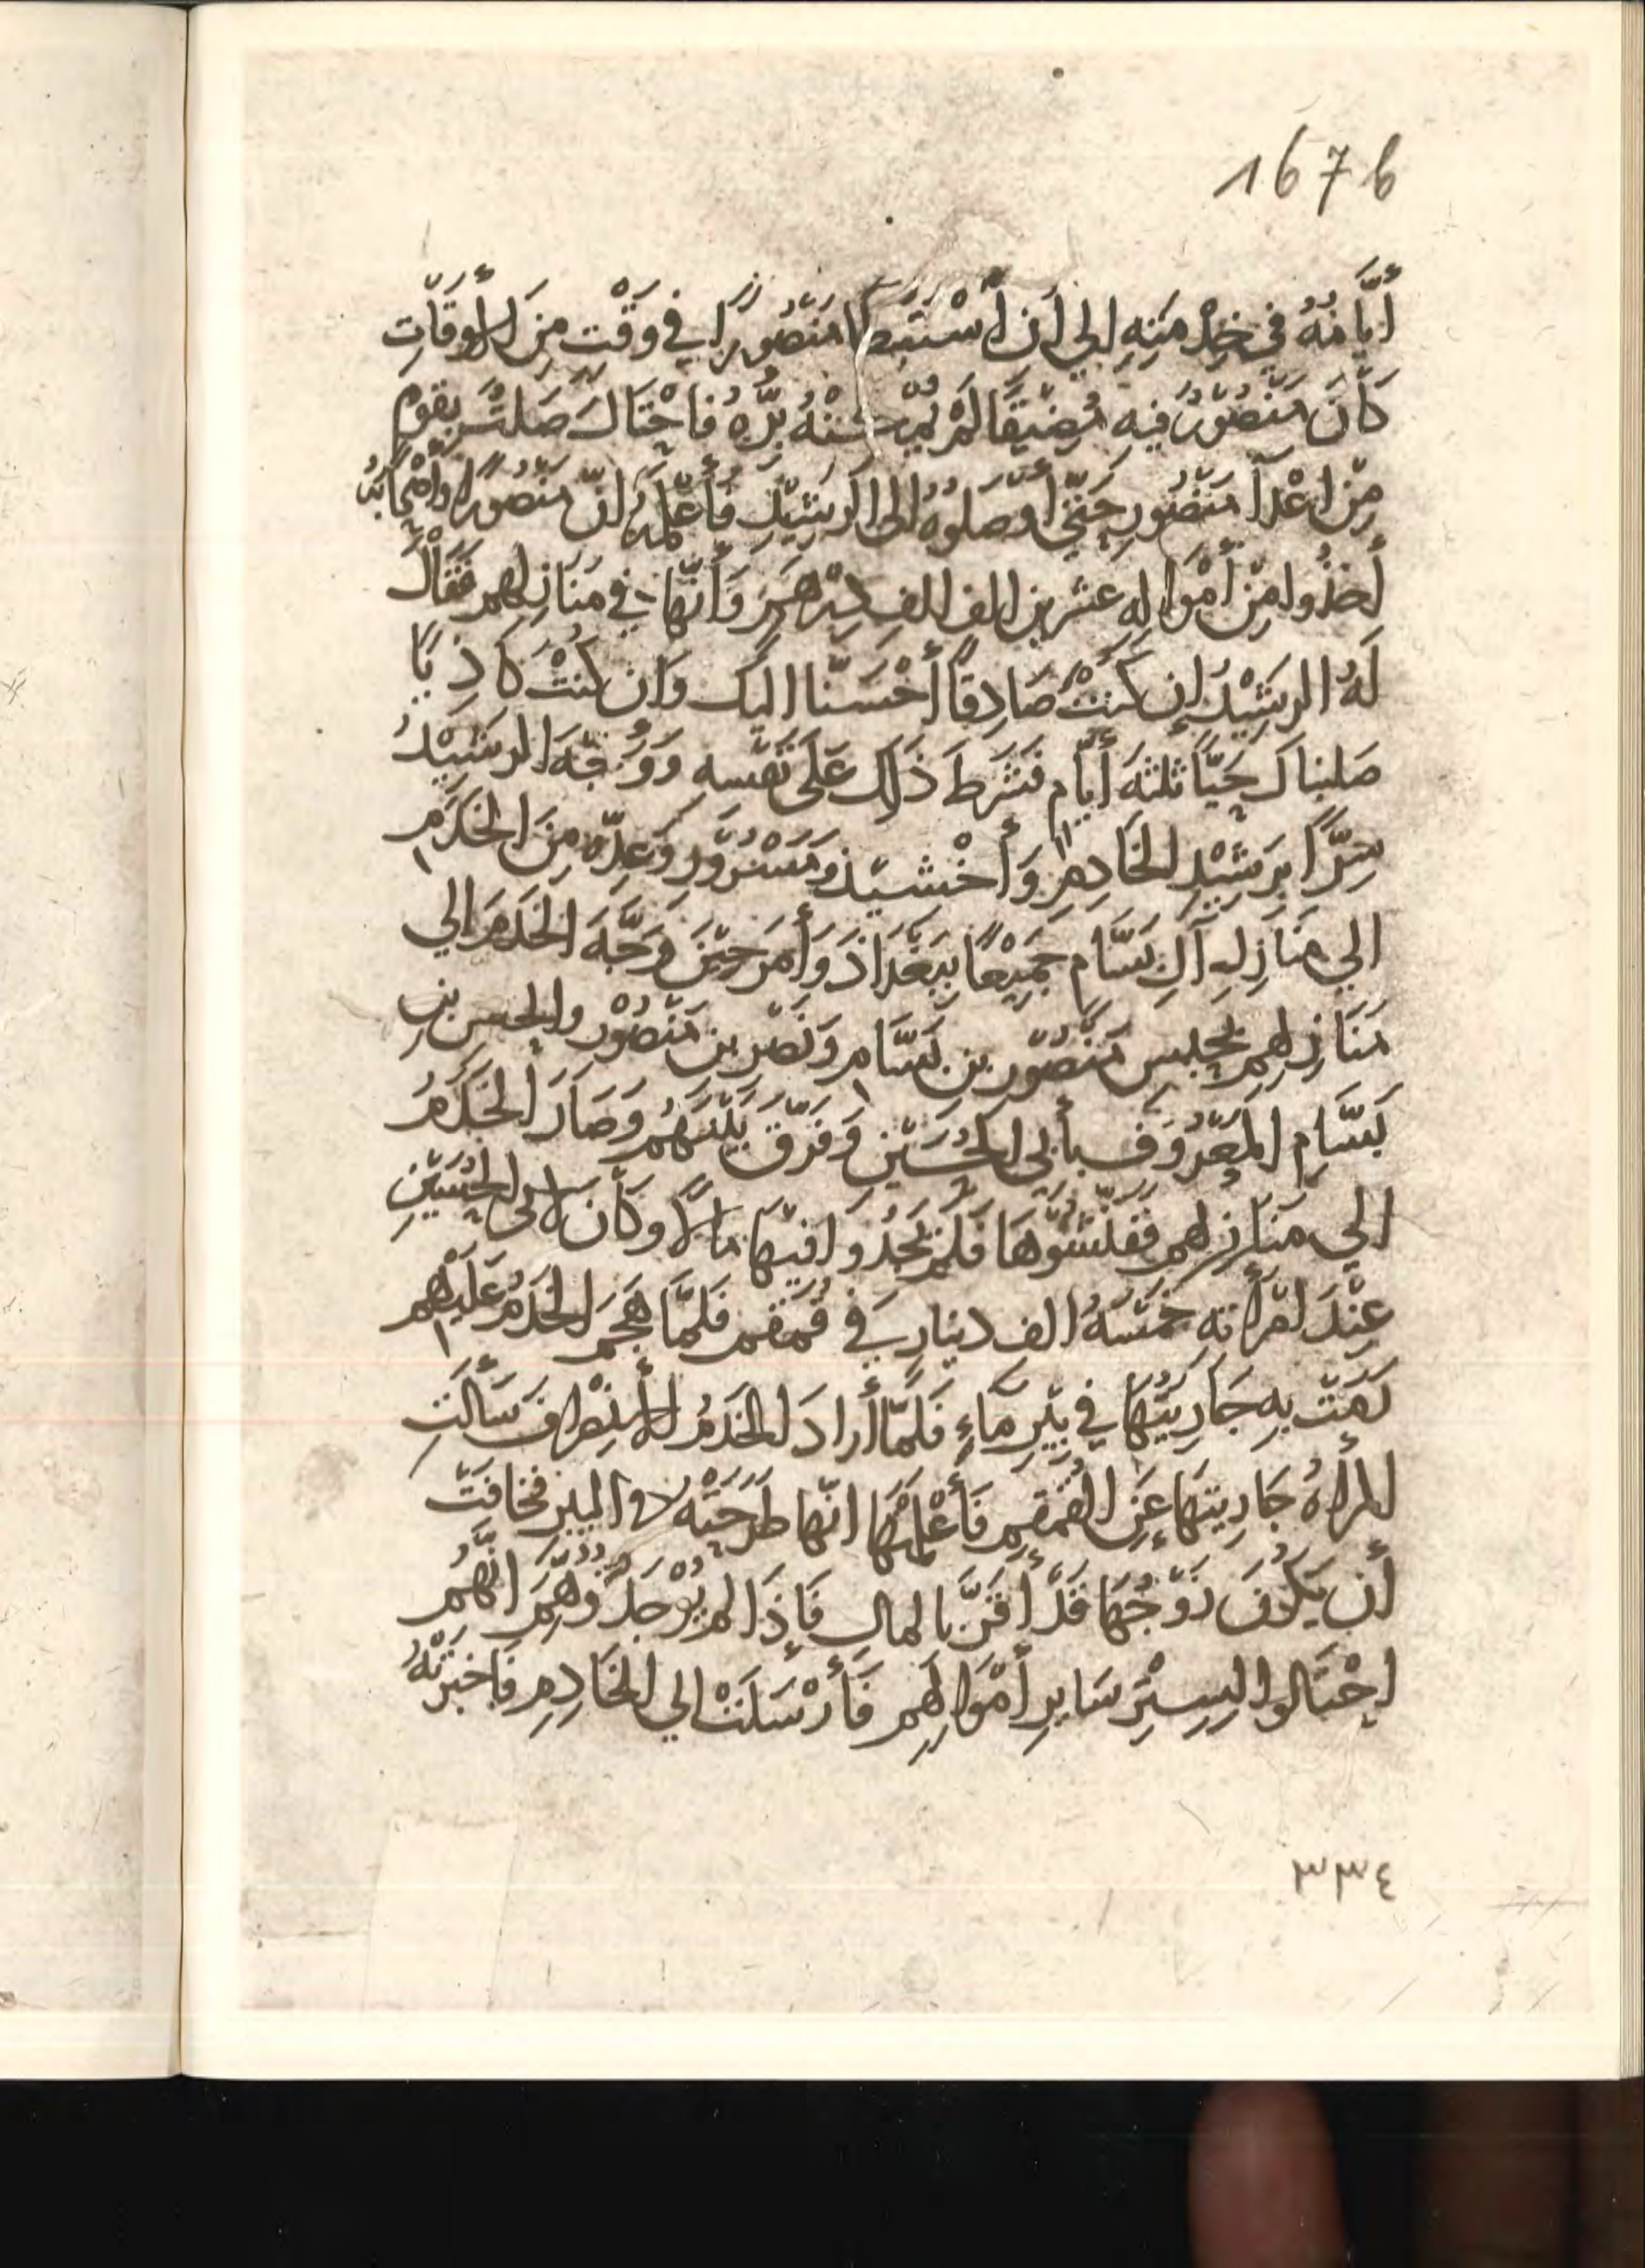 167b
أَيَّامُهُ في خِدْمَتِهِ الي أن اسْتَبْطَا مَنْصُورًا في وَقْتٍ مِنَ الأَوقَاتِ
كَانَ مَنْصُورٌ فيه مُضَيَّقًا لَمْ يُمْكِنْهُ بِرُّهُ فَاحْتَالَ صَلتٌ بِقَومٍ
مِنْ اعْدآ مَنْصُورٍ حَتَّي أَوْصَلوهُ الى الرَشِيْدِ فَأَعْلَمَهُ انّ مَنْصُورًا وأَصْحَابَهُ
أَخَذُوا مِنْ أَمْوَالِه عشرين الف الفِ دِرْهَمٍ وَأَنَّهَا في مَنَازِلهِم فَقَالَ
لَهُ الرَشِيْدُ إِن كنتَ صَادِقًا أَحْسَنَّا اليك وَان كنْتَ كَاذِبًا
صَلبناك حَيًّا ثلثة أَيَّام فَشَرَطَ ذَلِك عَلَى نَفْسه وَوَجَّهَ الرَشيْدُ
سِرًّا برَشِيْدٍ الخَادِمِ وَأخْشيذ وَمَسْرُوْرٍ وَعِدَّةٍ مِنَ الخَدَمِ
الي مَنَازِلِ آلِ بَسَّام جَمِيْعًا بِبَغْدَاذَ وَأَمَرَ حِيْنَ وَجَّهَ الخَدَمَ الي
مَنَازِلِهِم بحبس مَنْصُوْرِ بن بَسَّامٍ وَنَصْرِ بن مَنْصُوْرٍ والحسن بنِ
بَسَّامٍ المَعْرُوْفِ بأبي الحُسَيْنِ وَفَرَّقَ بَيْنَهُم وَصَارَ الخَدَمُ
الي مَنَازِلهم فَفَتَّشُوْهَا فَلَمْ يَجِدُوا فيْهَا مَالًا وكَانَ لابى الحُسَيْنِ
عِنْدَ امْرَاتهِ خَمْسَةُ الف دينارٍ في قُمْقُمٍ فَلَمَّا هَجَمَ الخَدَمُ عَلَيْهِم
رَمَتْ بِهِ جَارِيَتُهَا في بِيْرِ مَاءٍ فَلَمَّا أَرادَ الخَدَمُ الأنْصِرافَ سَألَتِ
المرأةُ جَارِيتَهَا عَنِ القُمْقُمِ فَأَعْلَمَتْهَا انّها طَرَحَتْه في البير فخَافَتْ
أَن يَكُونَ زَوْجُهَا قَدْ أَقَرَّ بالمالِ فَإِذَا لم يُوْجَدْ تُوُهِّمَ انَّهُم
احْتَالوا لِسِتْرِ سَايِرِ أَمْوَالِهِم فَأَرْسَلَتْ الي الخَادِمِ فَاخبَرَتْهُ
٣٣٤